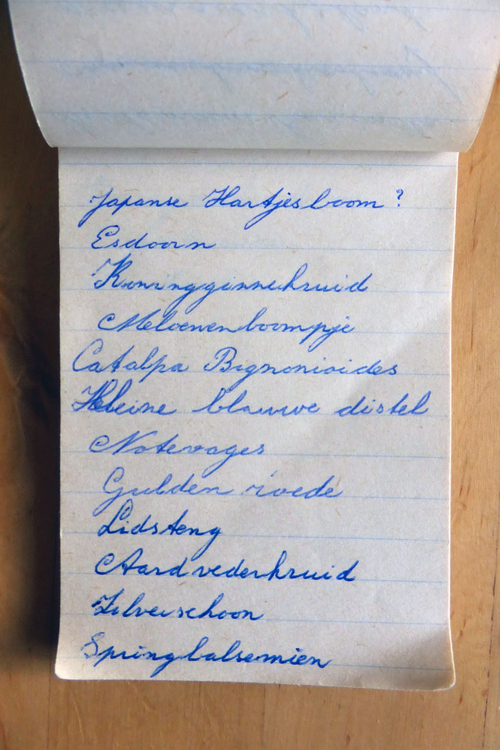 Japanse Hartjesboom?
Esdoorn
Koningginnekruid
Meloenenboompje
Catalpa Bignonioides
Kleine blauwe distel
Notevages
Gulden roede
Lidsteng
Aardvederkruid
Zilverschoon
Springbalsemien